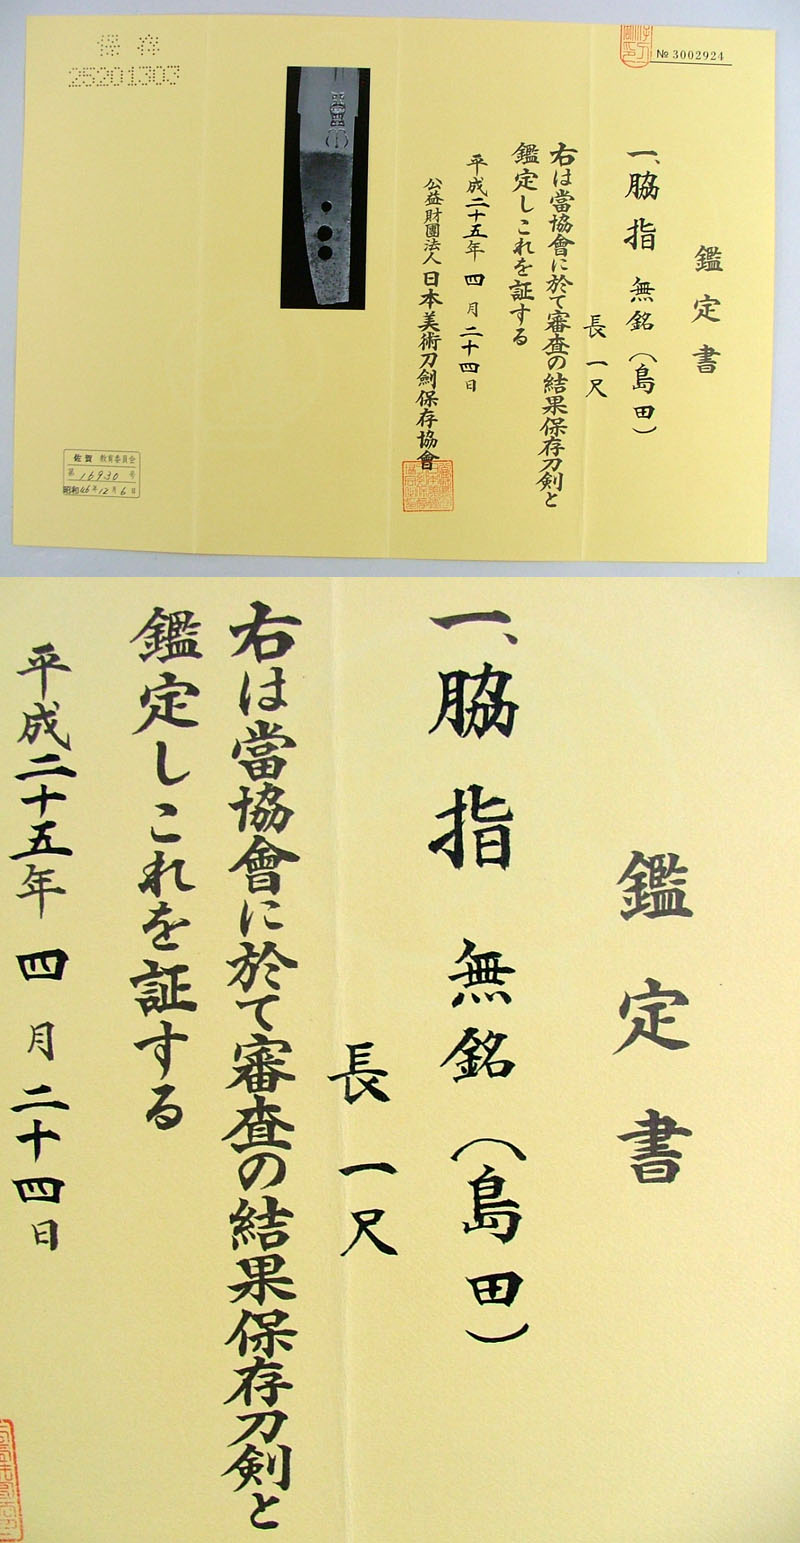 № 3002924
鑑定書
一、脇指 無銘（島田）
長 一尺
右は當協會に於て審査の結果保存刀剣と
鑑定しこれを証する
平成二十五年 四 月 二十四日
公益財團法人 日本美術刀劍保存協會
保存
25201303
佐賀 教育委員会
第 16930 号
昭和46年12月6日
鑑定書
一、脇指 無銘（島田）
長 一尺
右は當協會に於て審査の結果保存刀剣と
鑑定しこれを証する
平成二十五年 四 月 二十四日